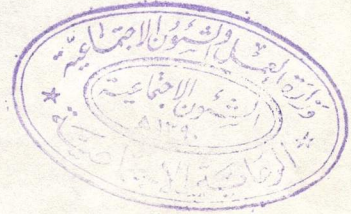 وزارة العمل والشئون الاجتماعية
الشئون الاجتماعية
١٣٩٠ﻫ
الرعاية الاجتماعية